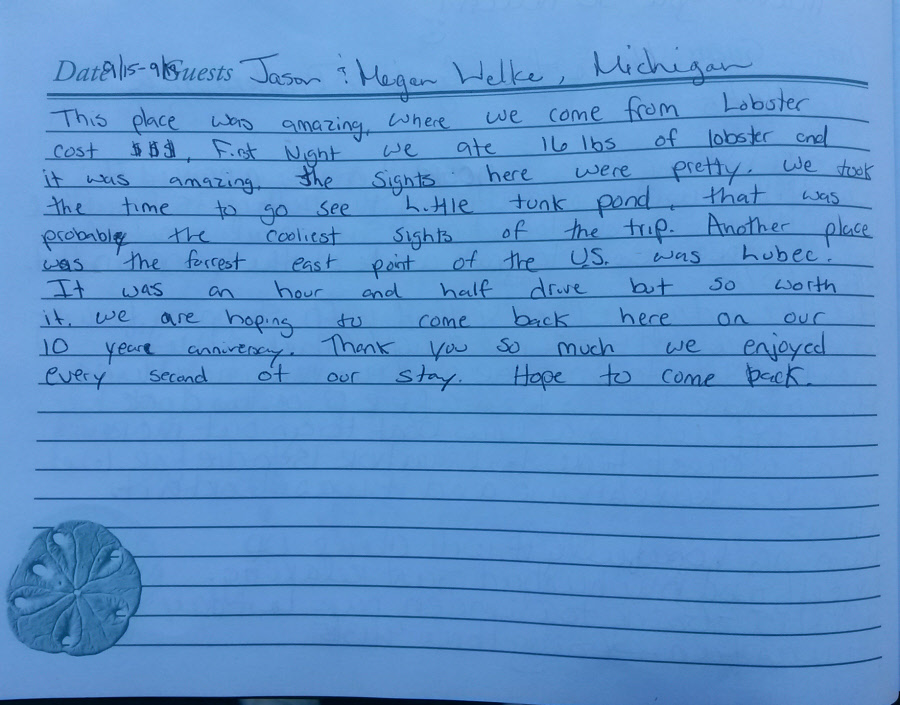 Date 9/15-9/18 Guests Jason & Megan Welke, Michigan
This place was amazing, where we come from Lobster
cost $$$, First Night we ate 16 lbs of lobster and
it was amazing. the Sights here were pretty. We took
the time to go see Little tunk pond, that was
probably the cooliest sights of the trip. Another place
was the farrest east point of the US. was lubec.
It was an hour and half drive but so worth
it. we are hoping to come back here on our
10 year anniversay. Thank you so much we enjoyed
every second of our stay. Hope to come back.